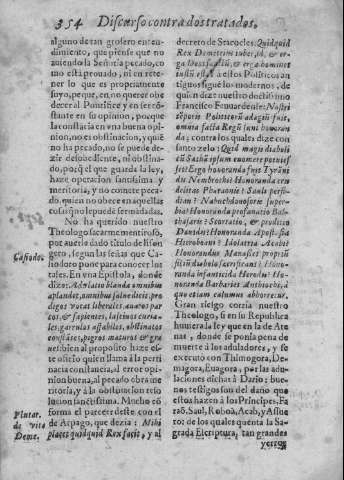 354 Discurso contra dos tratados,
alguno de tan grosero enten-
dimiento, que piense que no
auiendo la Señoria pecado, co
mo està prouado, ni en rete-
ner lo que es propriamente
suyo, peque, en no querer obe
decer al Pontifice y en ser cõ-
stante en su opinion, porque
la constacia en vna buena opi-
nion, no es obstinacion, y quiẽ
no ha pecado, no se puede de-
zir desobediente, ni obstina-
do, porq̃ el que guarda la ley,
haze operacion santissima y
meritoria, y no comete peca-
do, quien no obece en aquellas
cosas q̃ no se pueden llamar
No ha querido nuestro
Theologo sacarme mentiroso,
por auerle dado titulo de lison
gero, segun las señas que Ca-
siodoro pone para conocer los
tales. En vna Epistola, donde
dize: Adulatio blanda omnibus
aplaudet, omnibus salue dicit, pro
digos vocat liberales, auaros par
cos, & sapientes, lasciuos curia-
les, garrulos affabiles, obstinatos
constãtes, pigros maturos & gra
ues: bien al proposito haze es-
te oficio quien llama à la perti-
nacia constancia, al error opi-
nion buena, al pecado obra me
ritoria, y à la obstinacion reso
lucion sanctissima. Mucho cõ
forma el parecer deste con el
de Arpago, que dezia: Mihi
placet quidquid Rex facit, y al
Casiodo.
Plutar.
de vita
Deme.
decreto de Stratocles. Quidquid
Rex Demetrius iubet, id, & er-
ga Deos sanctũ, & erga homines
iustũ esto: à estos Politicos an
tiguos siguẽ los modernos, de
quien dize nuestro doctissimo
Francisco Feuuardente: Nostri
tẽporis Politicorũ adagiũ fuit,
omnia facta Regũ sunt honoran
da; contra los quales dize con
santo zelo: Quid magis diaboli
cũ Satbã ipsum euomere potuisset
Ergo honoranda fuit Tyrãni
dis Nembrothi? Honoranda cru
delitas Pharaonis? Sauls perfi-
diam? Nabuchdonosoris super-
bia? Honoranda profanatio Bal-
thasaris? Scortatio, & proditio
Dauidis? Honoranda Apostasia
Hieroboam? Idolatria Acabi?
Honorandus Manasses propriũ
filiũ diabolo sacrificans? Hono-
randa infanticida Herodis? Ho-
noranda Barbaries Anthiochi, à
quo etiam calumus abhorret.
Gran riesgo corria nuestro
Theologo, si en su Republica
huuiera la ley que en la de Ate
nas, donde se ponia pena de
muerte à los aduladores, y se
executo con Thimogora, De-
magora, Euagora, por las adu-
laciones dichas à Dario; bue-
nos testigos son del daño que
estos hazen à los Principes, Fa-
raõ, Saul, Roboà, Acab, y Assue-
ro: de los quales quenta la Sa-
grada Escriptura, tan grandes
yerros